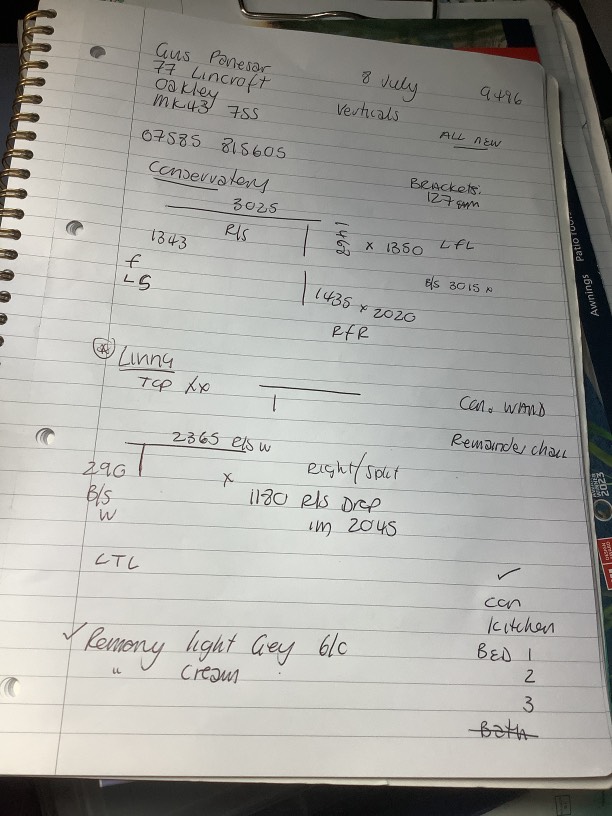 Gus Panesar
77 Lincroft
Oakley
MK43 7SS
07585 815605
8 July
9496
Verticals
ALL NEW
BRACKETS.
127 mm
Conservatory
3025
R/S
1343
f
LS
x 1350 LFL
B/S 3015 N
1435 x 2020
RFR
TOP
Con. WAND
Remainder chain
2365 R/S W
290
B/S
W
x
Right/Split
1180 R/S Drop
1m 2045
LTL
✓
con
kitchen
BED 1
2
3
Bath
✓ Remony light Grey b/c
" Cream
Awnings Patio
2023